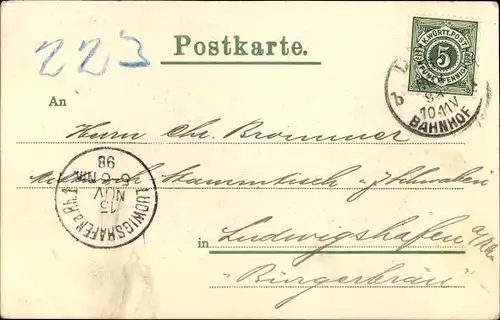 223
Postkarte.
K. WÜRTT. POST
5
FÜNF PFENNIG
10-11V
BAHNHOF
An
Herrn Chr. Brommer
Stammtisch z. Schwaben
LUDWIGSHAFEN a. RH. 1
15
NOV
5-6 NM.
98
in Ludwigshafen a/Rh
"Bürgerbräu"